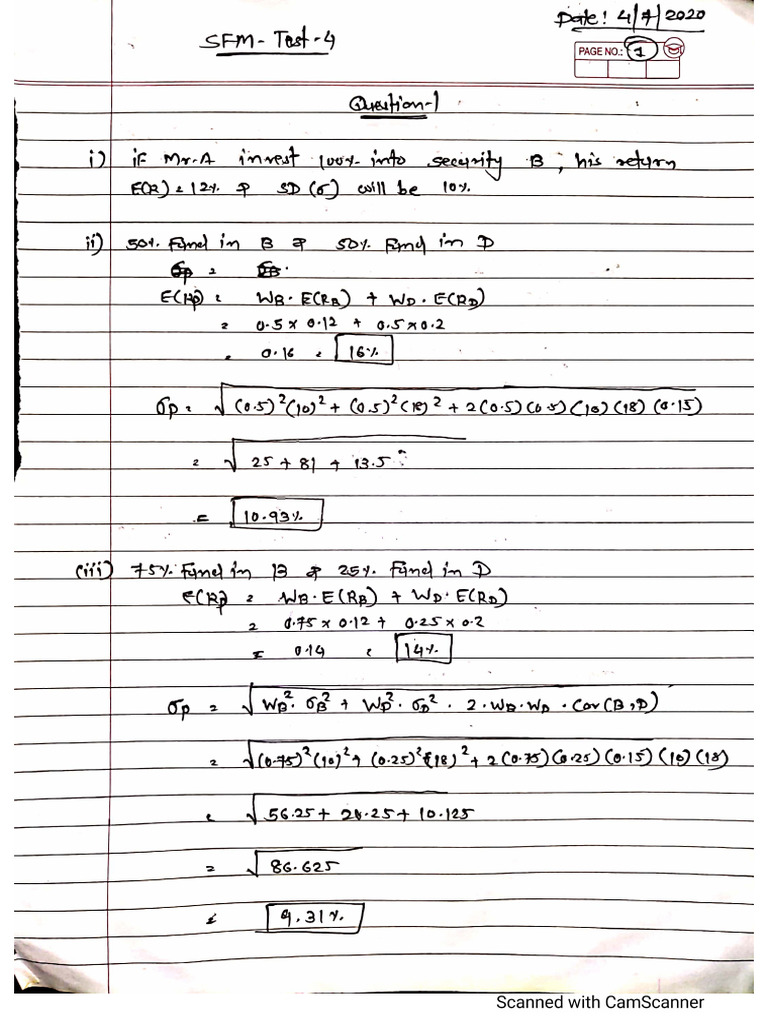 Date: 4/7/2020
SFM - Test - 4
PAGE NO.: 1
Question-1
i) if Mr.A invest 100% into security B, his return
E(R) = 12% & SD (σ) will be 10%.
ii) 50% Fund in B & 50% Fund in D
E(Rp) = WB . E(RB) + WD . E(RD)
= 0.5 x 0.12 + 0.5 x 0.2
= 0.16 = 16%
σp = √(0.5)²(10)² + (0.5)²(18)² + 2(0.5)(0.5)(10)(18)(0.15)
= √25 + 81 + 13.5
= 10.93%
(iii) 75% Fund in B & 25% Fund in D
E(Rp) = WB . E(RB) + WD . E(RD)
= 0.75 x 0.12 + 0.25 x 0.2
= 0.14 = 14%
σp = √WB² . σB² + WD² . σD² . 2 . WB . WD . Cov(B,D)
= √(0.75)²(10)² + (0.25)²(18)² + 2(0.75)(0.25)(0.15)(10)(18)
= √56.25 + 20.25 + 10.125
= √86.625
= 9.31%
Scanned with CamScanner